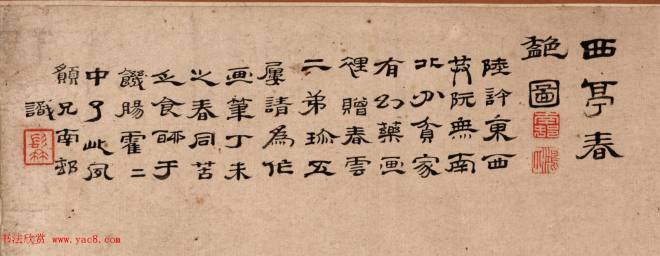 西亭春
艷圖
陸許東西
阮無南
北分貧家
有藥画
裡贈春雲
二弟珍五
屢請為作
画筆丁未
之春同苦
乏食聊于
饑腸霍二
中了此夙
願兄南邨
識
书法欣赏 www.yac8.com